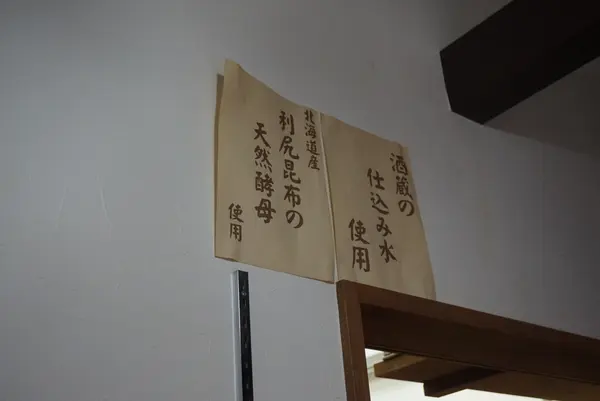 酒蔵の
仕込み水
使用
北海道産
利尻昆布の
天然酵母
使用